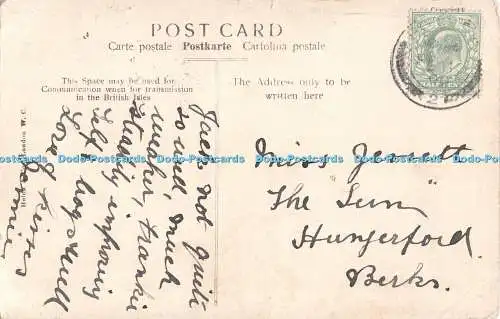 POST CARD
Carte postale Postkarte Cartolina postale
This Space may be used for
Communication when for transmission
in the British Isles
The Address only to be
written here
Jack not quite
so well, much
weaker, Frankie
steadily improving
Self hogs well
Love & Kisses
Miss Jennett
The Sun
Hungerford
Berks.
London W. C.
Dodo-Postcards Dodo-Postcards Dodo-Postcards Dodo-Postcards Dodo-Postcards Dodo-Postcards